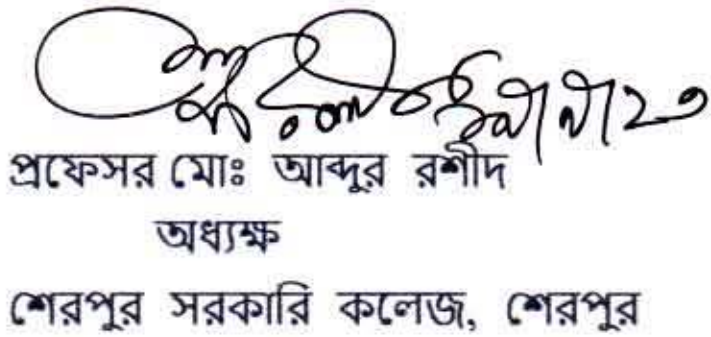 প্রফেসর মোঃ আব্দুর রশীদ
অধ্যক্ষ
শেরপুর সরকারি কলেজ, শেরপুর